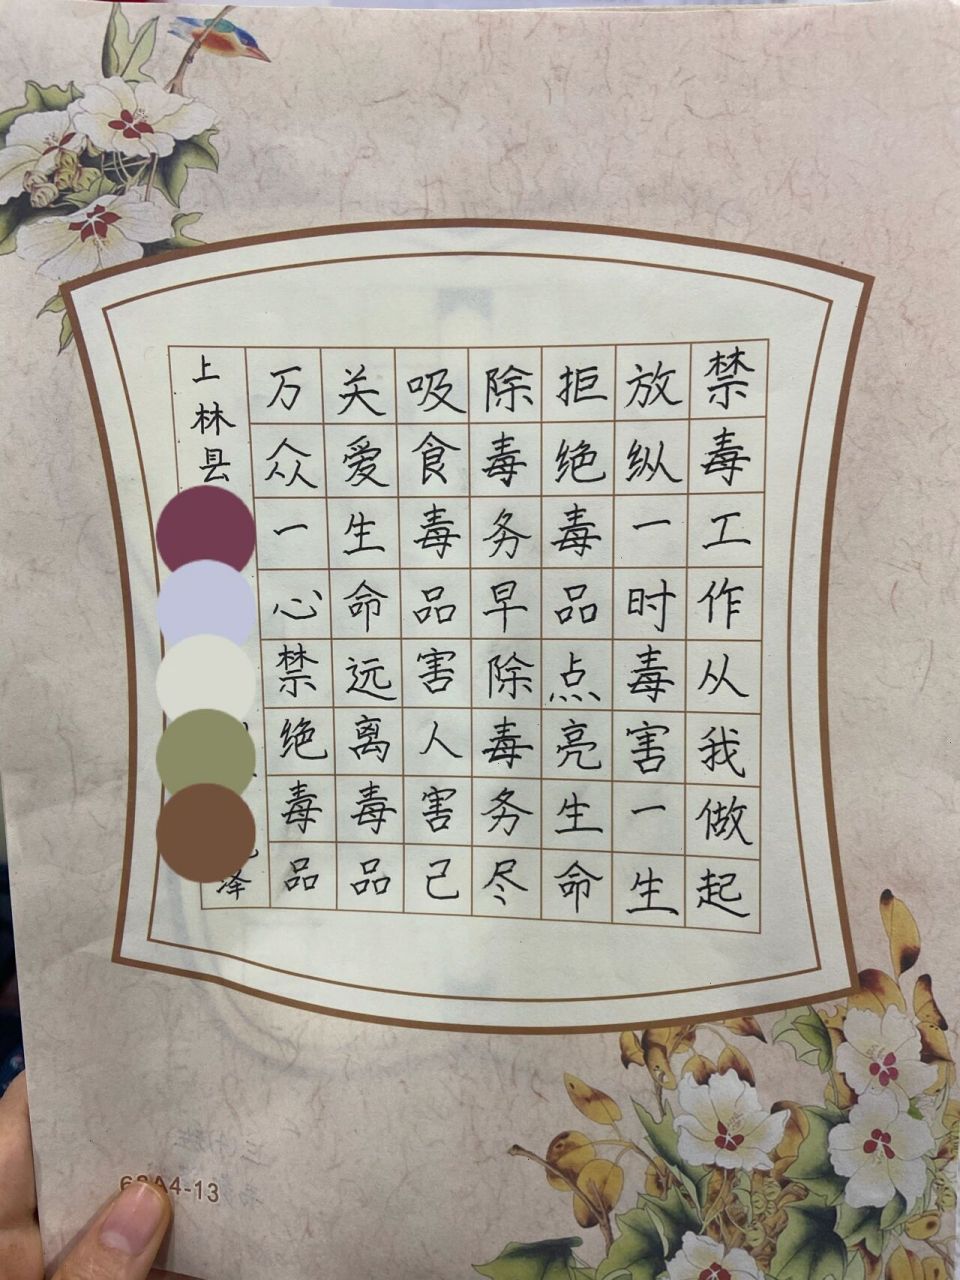 禁毒工作从我做起
放纵一时毒害一生
拒绝毒品点亮生命
除毒务早除毒务尽
吸食毒品害人害己
关爱生命远离毒品
万众一心禁绝毒品
上林县
泽
68A4-13